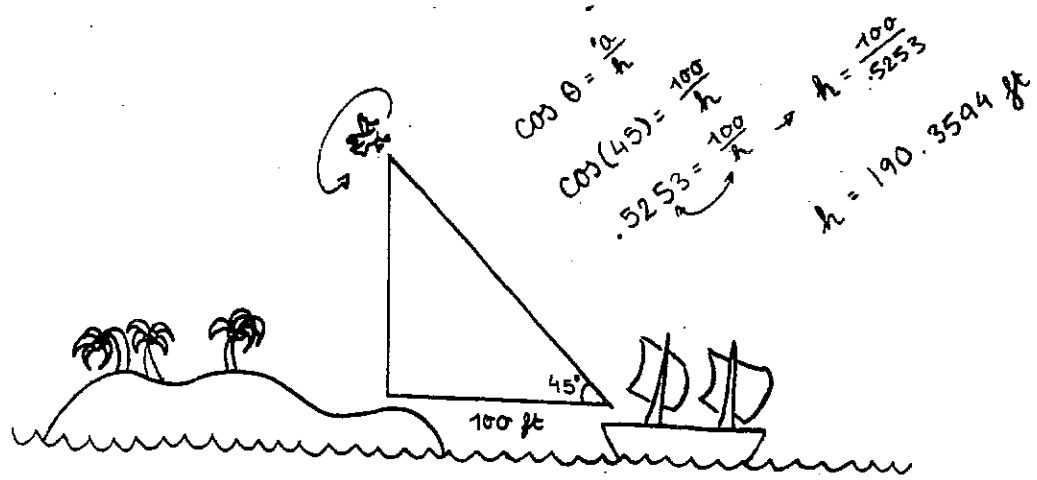 cos θ = a/h
cos(45) = 100/h
.5253 = 100/h → h = 100/.5253
h = 190.3594 ft
45°
100 ft